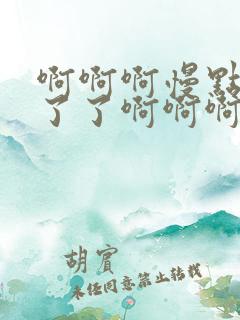 啊啊啊慢點
了了啊啊啊
胡賓
未经同意禁止转载